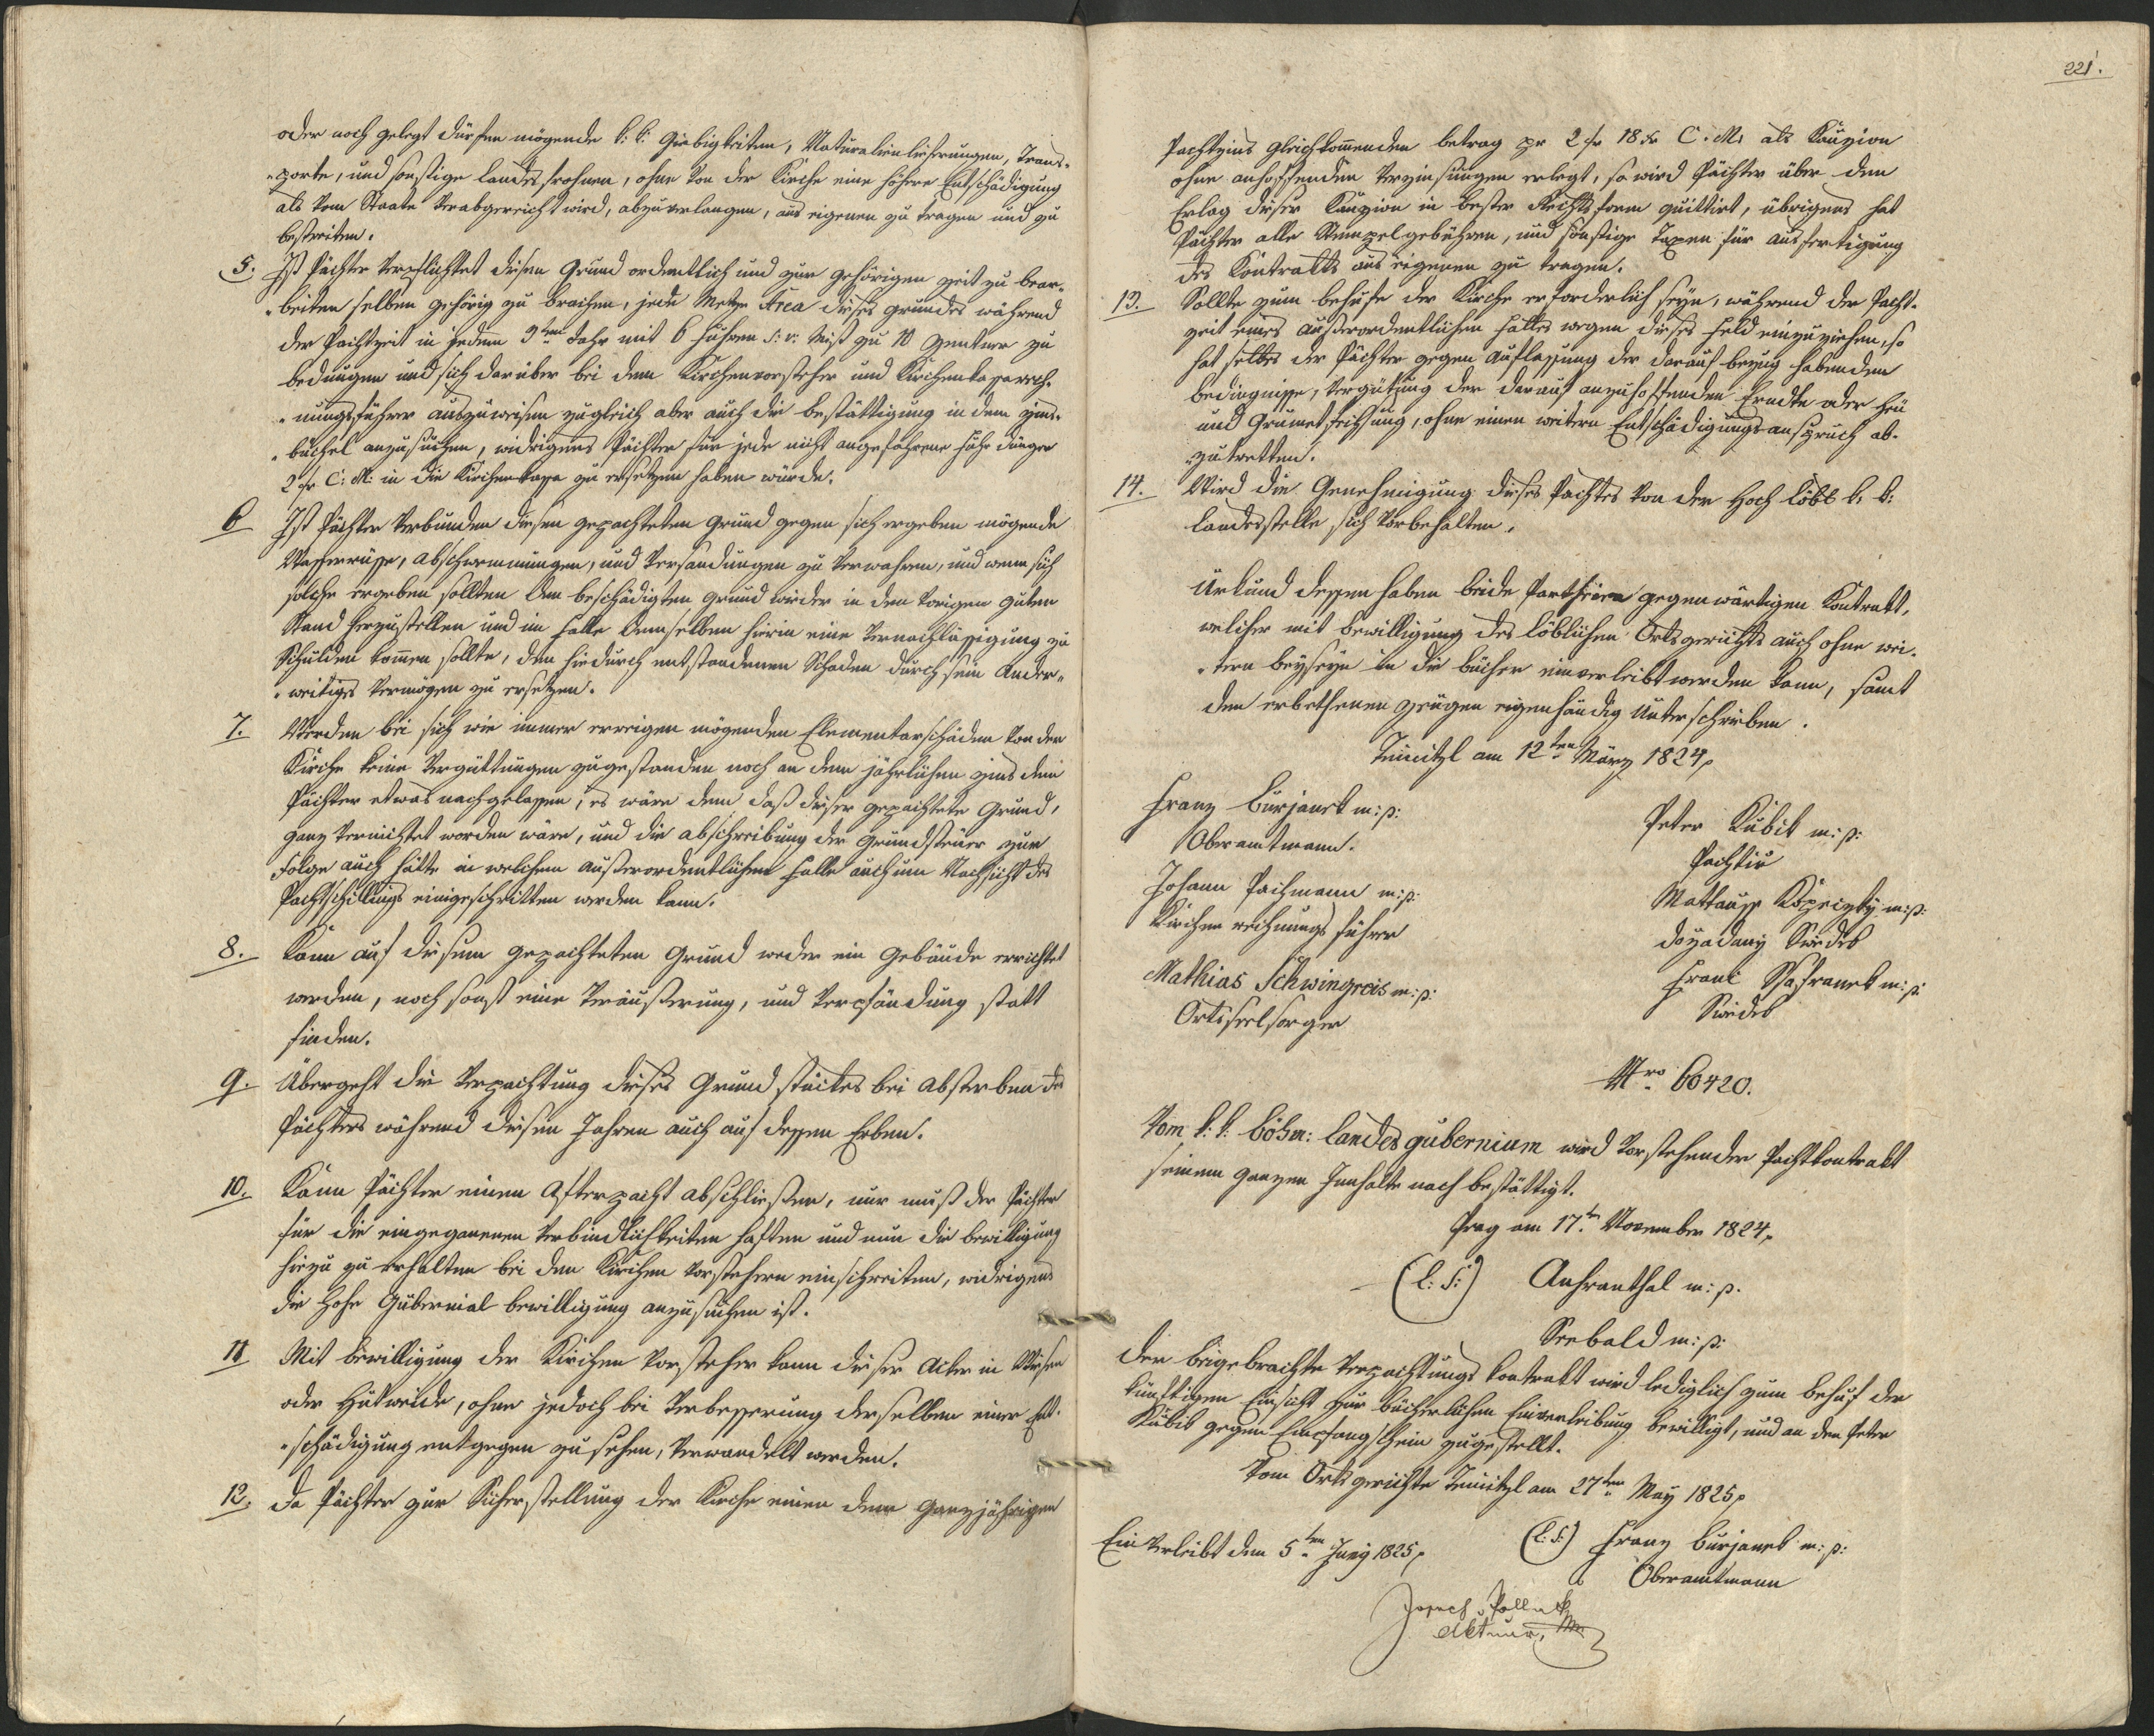 oder noch gelegt dürfen mögende k: k: Giebigkeiten, Naturalienlieferungen, Trans-
-porte, und sonstige Landesfrohnen, ohne von der Kirche eine höhere Entschädigung
als vom Staate verabgereicht wird, abzuverlangen, aus eigenen zu tragen und zu
bestreiten.
5. Ist Pächter verpflichtet diesen Grund ordentlich und zur gehörigen Zeit zu bear-
-beiten selben gehörig zu brachen, jede Metze Area dieses Grundes während
der Pachtzeit in jedem 3ten Jahr mit 6 Fuhren s: v: Mist zu 10 Zentner zu
bedüngen und sich darüber bei dem Kirchenvorsteher und Kirchenkassarech-
-nungsführer auszuweisen zugleich aber auch die Bestättigung in dem Zins-
-büchel anzusuchen, widrigens Pächter für jede nicht angeführene Fuhr Dünger
2 fr C: M: in die Kirchenkassa zu ersetzen haben würde.
6 Ist Pächter verbunden diesen gepachteten Grund gegen sich ergeben mögende
Wasserrisse, Abschwemmungen, und Versandungen zu verwahren, und wenn sich
solche ergeben sollten den beschädigten Grund wieder in den vorigen guten
Stand herzustellen und im Falle demselben hierin eine Vernachlässigung zu
Schulden kommen sollte, den hiedurch entstandenen Schaden durch sein Ander-
-weitiges Vermögen zu ersetzen.
7. Werden bei sich wie immer ereeigen mögenden Elementarschäden von der
Kirche keine Vergüttungen zugestanden noch an dem jährlichen Zins dem
Pächter etwas nachgelassen, es wäre denn daß dieser gepachtete Grund,
ganz vernichtet worden wäre, und die Abschreibung der Grundsteuer zur
Folge auch hätte in welchem außerordentlichem Falle auch um Nachsicht des
Pachtschillings eingeschritten werden kann.
8. Kann auf diesem gepachteten Grund weder ein Gebäude errichtet
werden, noch sonst eine Veräußerung, und Verpfändung statt
finden.
9. Übergeht die Verpachtung dieses Grundstückes bei Absterben des
Pächters während diesen Jahren auch auf dessen Erben.
10. Kann Pächter einen Afterpacht abschließen, nur muß der Pächter
für die eingegangenen Verbindlichkeiten haften und nun die Bewilligung
hiezu zu erhalten bei den Kirchen Vorstehern einschreiten, widrigens
die hohe Gubernial Bewilligung anzusuchen ist.
11 Mit Bewilligung der Kirchen Vorsteher kann dieser Acker in Wiesen
oder Hutweide, ohne jedoch bei Verbesserung derselben einer Ent-
-schädigung entgegen zu sehen, verwandelt werden.
12. Da Pächter zur Sicherstellung der Kirche einen dem ganzjährigen
221.
Pachtzins gleichkommenden Betrag pr 2 fr 18 xr C. M. als Kauzion
ohne anhoffenden Verzinsungen erlegt, so wird Pächter über den
Erlag dieser Kauzion in bester Rechtsform quittirt, übrigens hat
Pächter alle Stempelgebühren, und sonstige Taxen für Ausfertigung
des Kontrakts aus eigenen zu tragen.
13. Sollte zum Behufe der Kirche erforderlich seyn, während der Pacht-
zeit eines außerordentlichen Falles wegen dieses Feld einzuziehen, so
hat selbes der Pächter gegen Auflassung der darauf bezug habenden
Bedingnisse, Vergütung der darauf anzuhoffenden Erndte oder Heu
und Grumetfechsung, ohne einen weitern Entschädigungsanspruch ab-
-zutretten.
14. Wird die Genehmigung dieses Pachtes von der Hoch löbl k. k:
Landesstelle sich vorbehalten.
Urkund dessen haben beide Partheien gegenwärtigen Kontrakt,
welcher mit Bewilligung des löblichen Ortsgerichts auch ohne wei-
-tern Beyseyn in die Bücher einverleibt werden kann, samt
den erbethenen Zeugen eigenhändig Unterschrieben.
am 12ten März 1824
Franz Burjanek m: p:
Oberamtmann.
Johann Pachmann m: p:
Kirchen rechnungsführer
Mathias Schwingreis m: p:
Ortsseelsorger
Peter Kubik m: p:
Pachtír
m: p:
Swědek
m: p:
Swědek
Nro 60420.
Vom k: k: böhm: Landesgubernium wird vorstehender Pachtkontrakt
seinem ganzen Innhalte nach bestättigt.
Prag am 17ten November 1824
(L: S:) m: p.
Seebald m: p:
Der beigebrachte Verpachtungs Kontrakt wird lediglich zum Behuf der
künftigen Einsicht zur bücherlichen Einverleibung bewilligt, und an den Peter
Kubik gegen Empfangschein zugestellt.
Vom Ortsgerichte am 27ten May 1825
(L: S:) Franz Burjanek m: p:
Oberamtmann
Einverleibt den 5ten Juny 1825
Joseph Pollak
Aktuar,